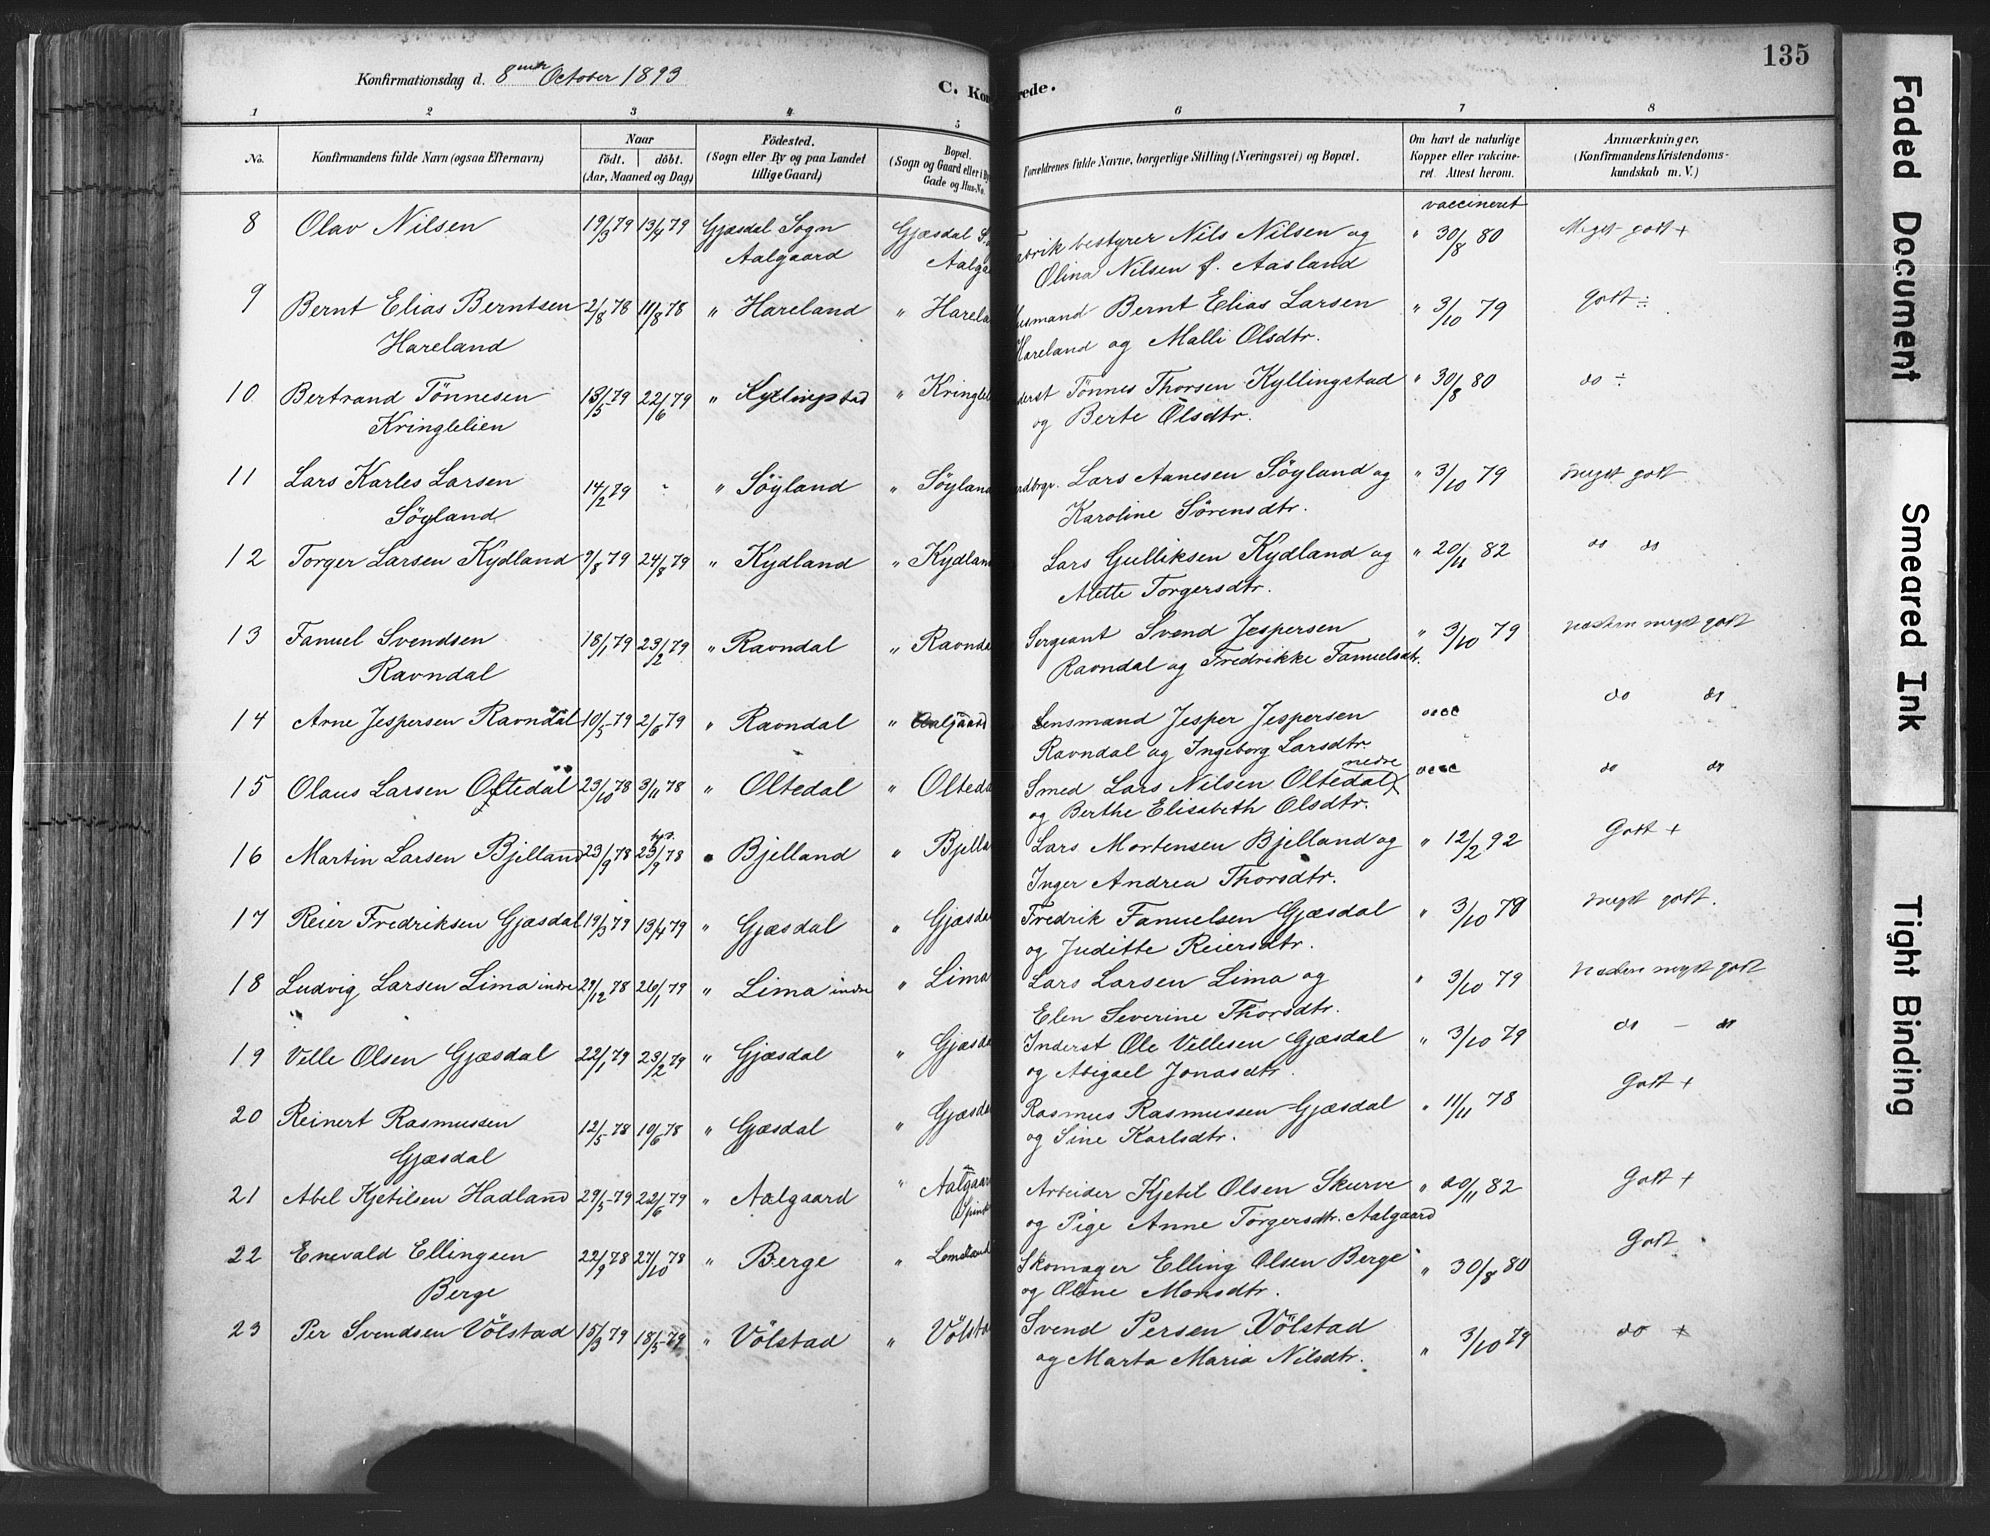 135
Konfirmationsdag d. 8 October 1893
C. Kon rede.
1 2 3 4 5 6 7 8
No. Konfirmandens fulde Navn (ogsaa Efternavn) Naar födt. döbt. (Aar, Maaned og Dag) Födested. (Sogn eller By og paa Landet tillige Gaard) Bopæl. (Sogn og Gaard eller i By Gade og Hus-No. Forældrenes fulde Navne, borgerlige Stilling (Næringsvei) og Bopæl. Om havt de naturlige Kopper eller vakcineret. Attest herom. Anmærkninger, (Konfirmandens Kristendomskundskab m. V.)
vaccineret
8 Olav Nilsen 19/3 79 13/4 79 Gjæsdal Sogn Gjæsdal S. Fabrikbestyrer Nils Nilsen og " 30/8 80 Meget godt +
Aalgaard Aalga Olina Nilsen f. Aasland
9 Bernt Elias Berntsen 2/8 78 11/8 78 " Hareland " Harela usmand Bernt Elias Larsen " 3/10 79 Godt ÷
Hareland Hareland og Malli Olsdtr.
10 Bertrand Tönnesen 13/5 79 22/6 79 " Kyllingstad " Kringleli derst Tönnes Thorsen Kyllingstad " 30/8 80 do ÷
Kringlelien og Berte Olsdtr.
11 Lars Karles Larsen 14/2 79 - " Söyland " Söyland rdbrgr. Lars Aanesen Söyland og " 3/10 79 meget godt
Söyland Karoline Sörensdtr.
12 Torger Larsen Kydland 9/8 79 24/8 79 " Kydland " Kydlan Lars Gulliksen Kydland og " 20/11 82 do do
Alette Torgersdtr.
13 Fanuel Svendsen 18/1 79 23/2 79 " Ravndal " Ravnda Sergeant Svend Jespersen " 3/10 79 næsten meget godt
Ravndal Ravndal og Fredrikke Fanuelsdtr.
14 Arne Jespersen Ravndal 10/5 79 2/6 79 " Ravndal " Aalgaard Lensmand Jesper Jespersen do do
Ravndal og Ingeborg Larsdtr.
nedre
15 Olaus Larsen Oftedal 23/10 78 3/11 78 " Oltedal " Olteda Smed Lars Nilsen Oltedal do do
og Berthe Elisabeth Olsdtr.
16 Martin Larsen Bjelland 23/9 78 23/9 78 " Bjelland " Bjella Lars Mortensen Bjelland og " 12/2 92 Godt +
Inger Andrea Thorsdtr.
17 Reier Fredriksen Gjæsdal 19/3 79 13/4 79 " Gjæsdal " Gjæsda Fredrik Fanuelsen Gjæsdal " 3/10 79 meget godt.
og Juditte Reiersdtr.
18 Ludvig Larsen Lima indre 29/12 78 26/1 79 " Lima indre " Lima Lars Larsen Lima og " 3/10 79 Næsten meget godt
Elen Severine Thorsdtr.
19 Velle Olsen Gjæsdal 22/1 79 23/2 79 " Gjæsdal " Gjæsda Inderst Ole Vellesen Gjæsdal " 3/10 79 do - do
og Abigael Jonasdtr.
20 Reinert Rasmussen 12/5 78 10/6 78 " Gjæsdal " Gjæsda Rasmus Rasmussen Gjæsdal " 11/11 78 Godt +
Gjæsdal og Sine Karlsdtr.
21 Abel Kjetilsen Hadland 29/5 79 22/6 79 " Aalgaard " Aalgaar Arbeider Kjetil Olsen Skurve " 20/11 82 Godt +
Spind og Pige Anne Torgersdtr. Aalgaard
22 Enevald Ellingsen 22/9 78 27/10 78 " Berge " Lomeland Skomager Elling Olsen Berge " 30/8 80 Godt
Berge og Oline Monsdtr.
23 Per Svendsen Völstad 15/3 79 18/5 79 " Völstad " Völsta Svend Persen Völstad " 3/10 79 do +
og Marta Maria Nilsdtr.
Faded Document
Smeared Ink
Tight Binding